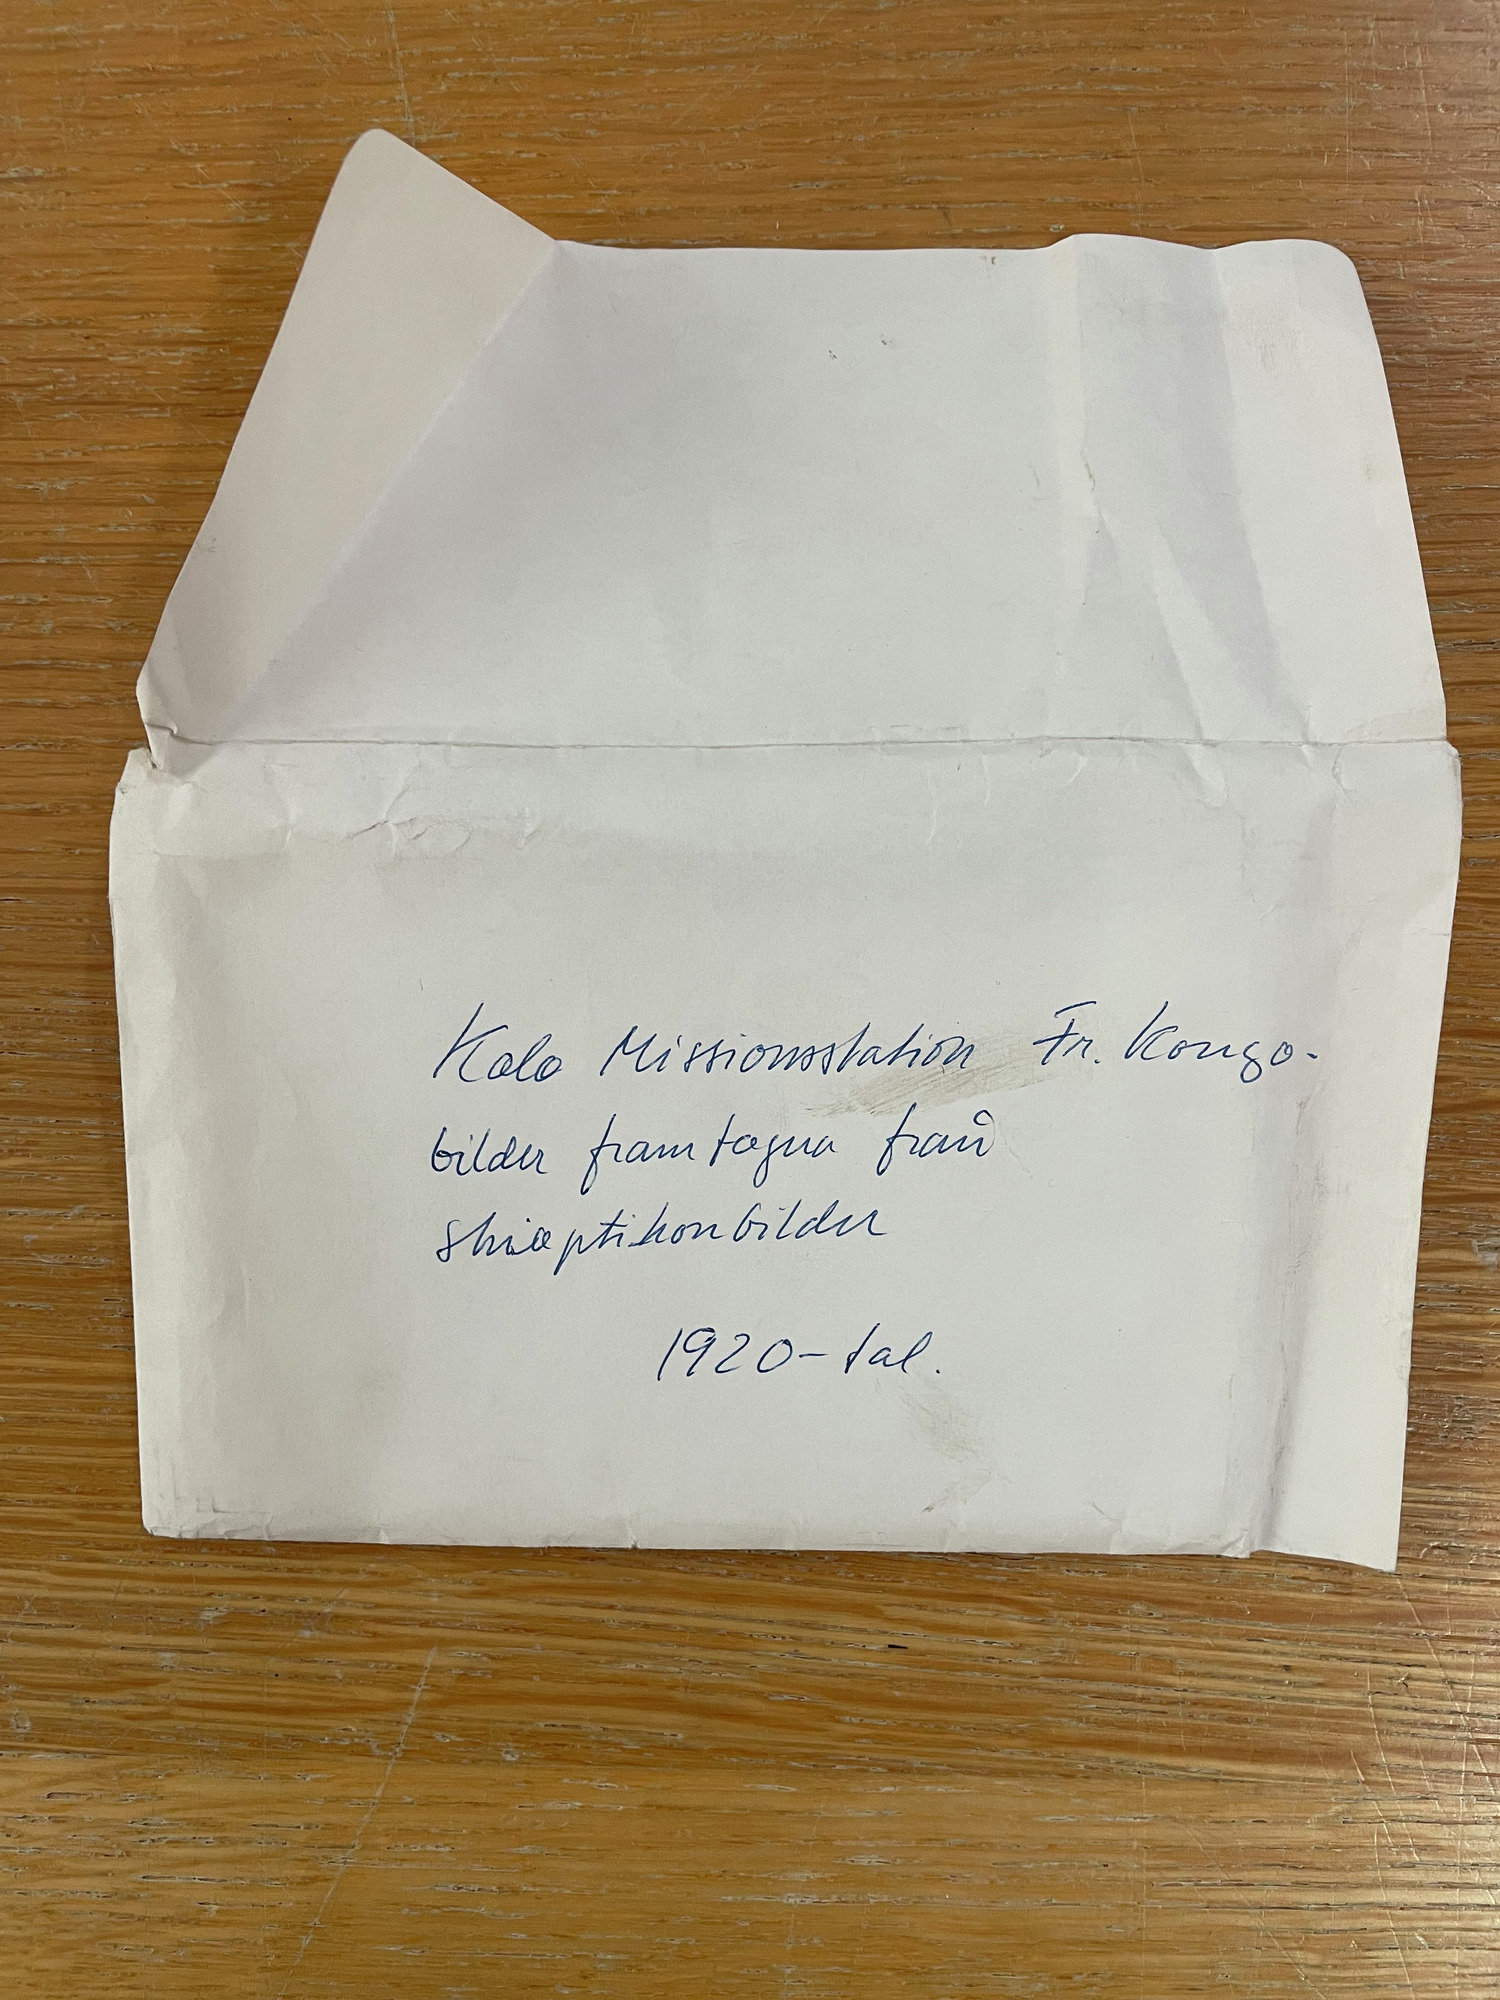 Kolo Missionsstation Fr. Kongo-
bilder framtagna från
skioptikonbilder
1920-tal.